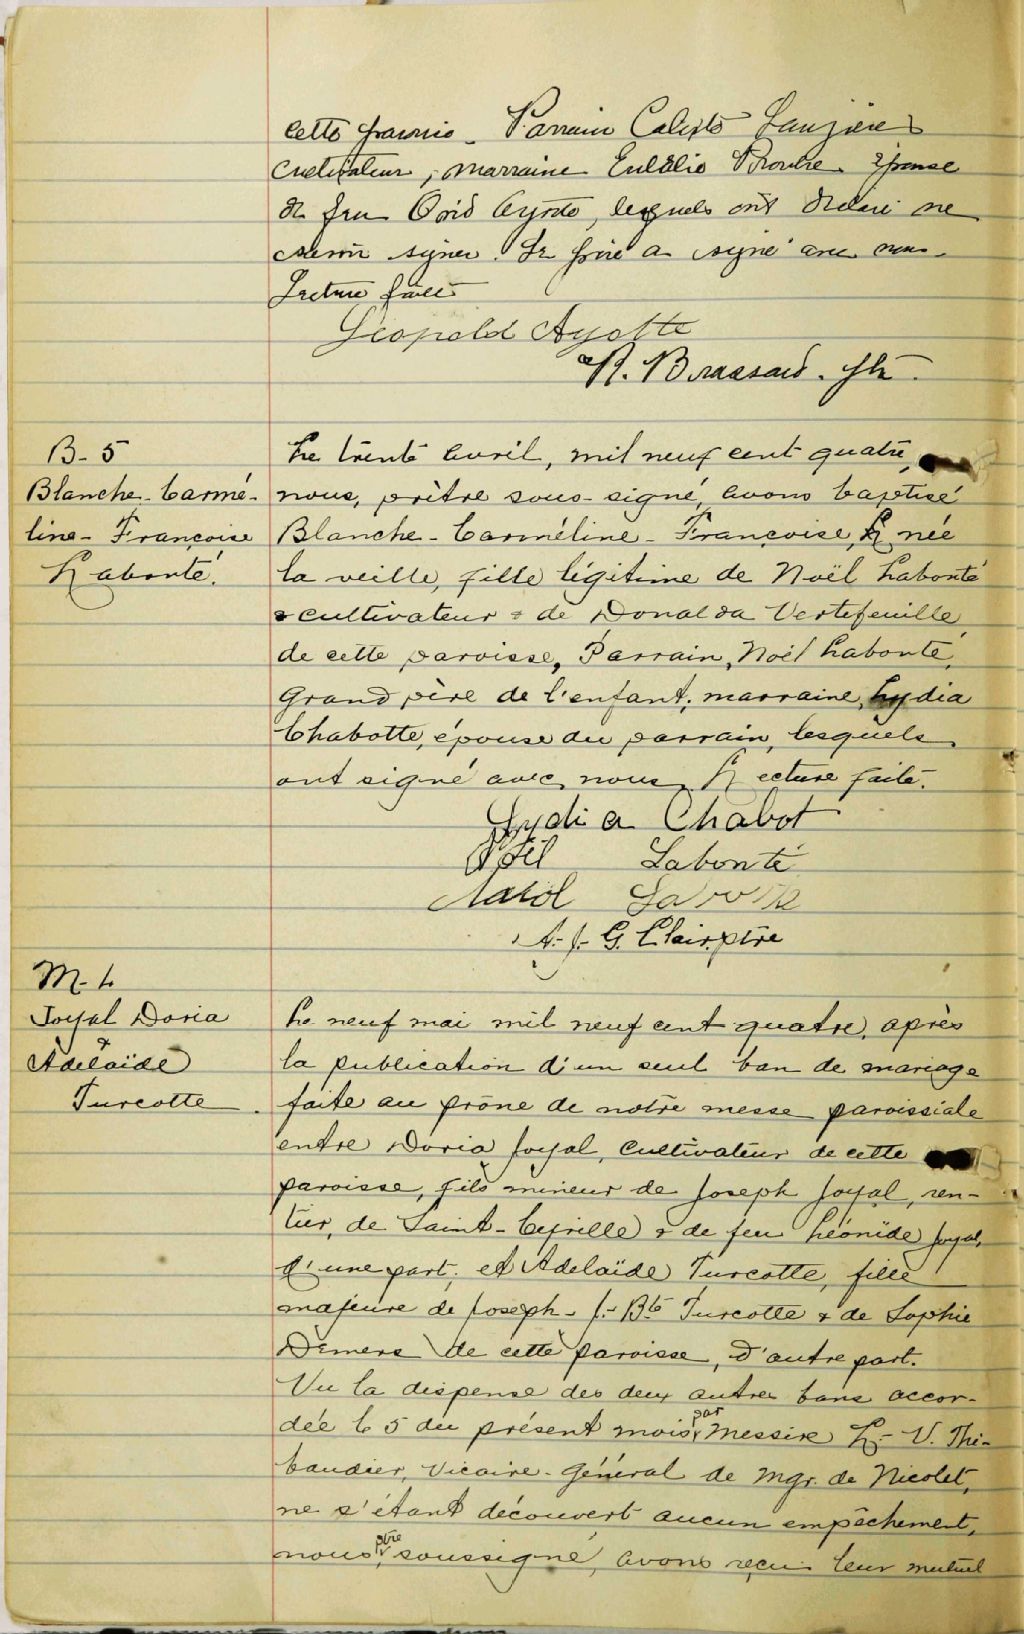 cette paroisse. Parrain Calixte Lauzière
cultivateur, marraine Eulalie Proulx épouse
de feu Ayotte, lesquels ont déclaré ne
savoir signer. Le père a signé avec nous.
Lecture faite
Léopold Ayotte
R. Brassard. ptr.
B-5
Blanche-Carmé-
line-Françoise
Labonté.
Le trente avril, mil neuf cent quatre,
nous, prêtre sous-signé, avons baptisé
Blanche-Carméline-Françoise, née
la veille, fille légitime de Noël Labonté
cultivateur & de Donalda Vertefeuille
de cette paroisse, Parrain, Noël Labonté,
Grand père de l'enfant; marraine, Lydia
Chabotte, épouse du parrain, lesquels
ont signé avec nous. Lecture faite.
Lydia Chabot
Noël Labonté
Labonté
A.-J.-G. Clair, ptre
M-4
Joyal Doria
&
Adélaïde
Turcotte.
Le neuf mai mil neuf cent quatre, après
la publication d'un seul ban de mariage
faite au prône de notre messe paroissiale
entre Doria Joyal, cultivateur de cette
paroisse, fils mineur de Joseph Joyal, ren-
tier, de Saint-Cyrille & de feu Léonide Joyal,
d'une part; et Adelaïde Turcotte, fille
majeure de Joseph-J.-Bte Turcotte & de Sophie
Demers de cette paroisse, d'autre part.
Vu la dispense des deux autres bans accor-
dée le 5 du présent mois par Messire H.-V. Thi-
baudier, Vicaire-Général de Mgr. de Nicolet,
ne s'étant découvert aucun empêchement,
nous, ptre soussigné, avons reçu leur mutuel